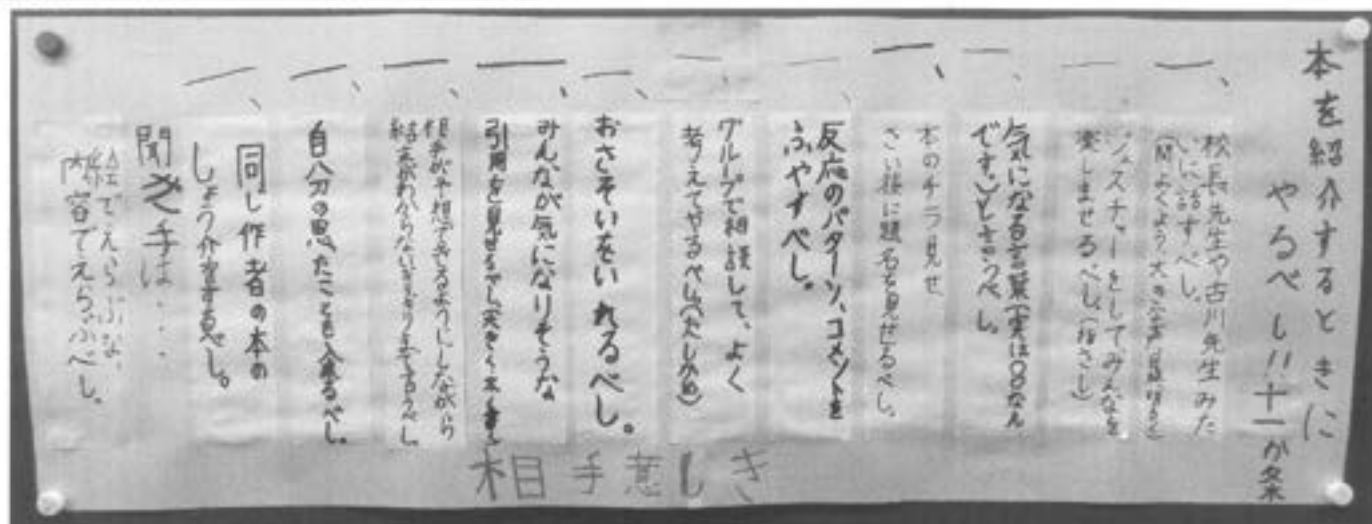 本を紹介するときに
やるべし!!十一か条
一、校長先生や古川先生みた
いに話すべし。
(間、よくよう、大小、声
一、ジェスチャーをしてみんなを
楽しませるべし。(指さし)
一、気になる言葉(実は〇〇なん
です。)という
べし。
一、本のチラ見せ
さい後に題名を見せるべし。
一、反応のパターン、コメントを
ふやすべし。
一、グループで相談して、よく
考えてやるべし。(たしかめ)
一、おさそいをいれるべし。
一、みんなが気になりそうな
引用を見せるべし
一、相手が予想できるようにしながら
結末がわからないようにするべし。
一、自分の思ったことも入れるべし。
一、同じ作者の本の
しょう介をするべし。
聞き手は....
絵でえらぶな、
内容でえらぶべし。
相手意しき